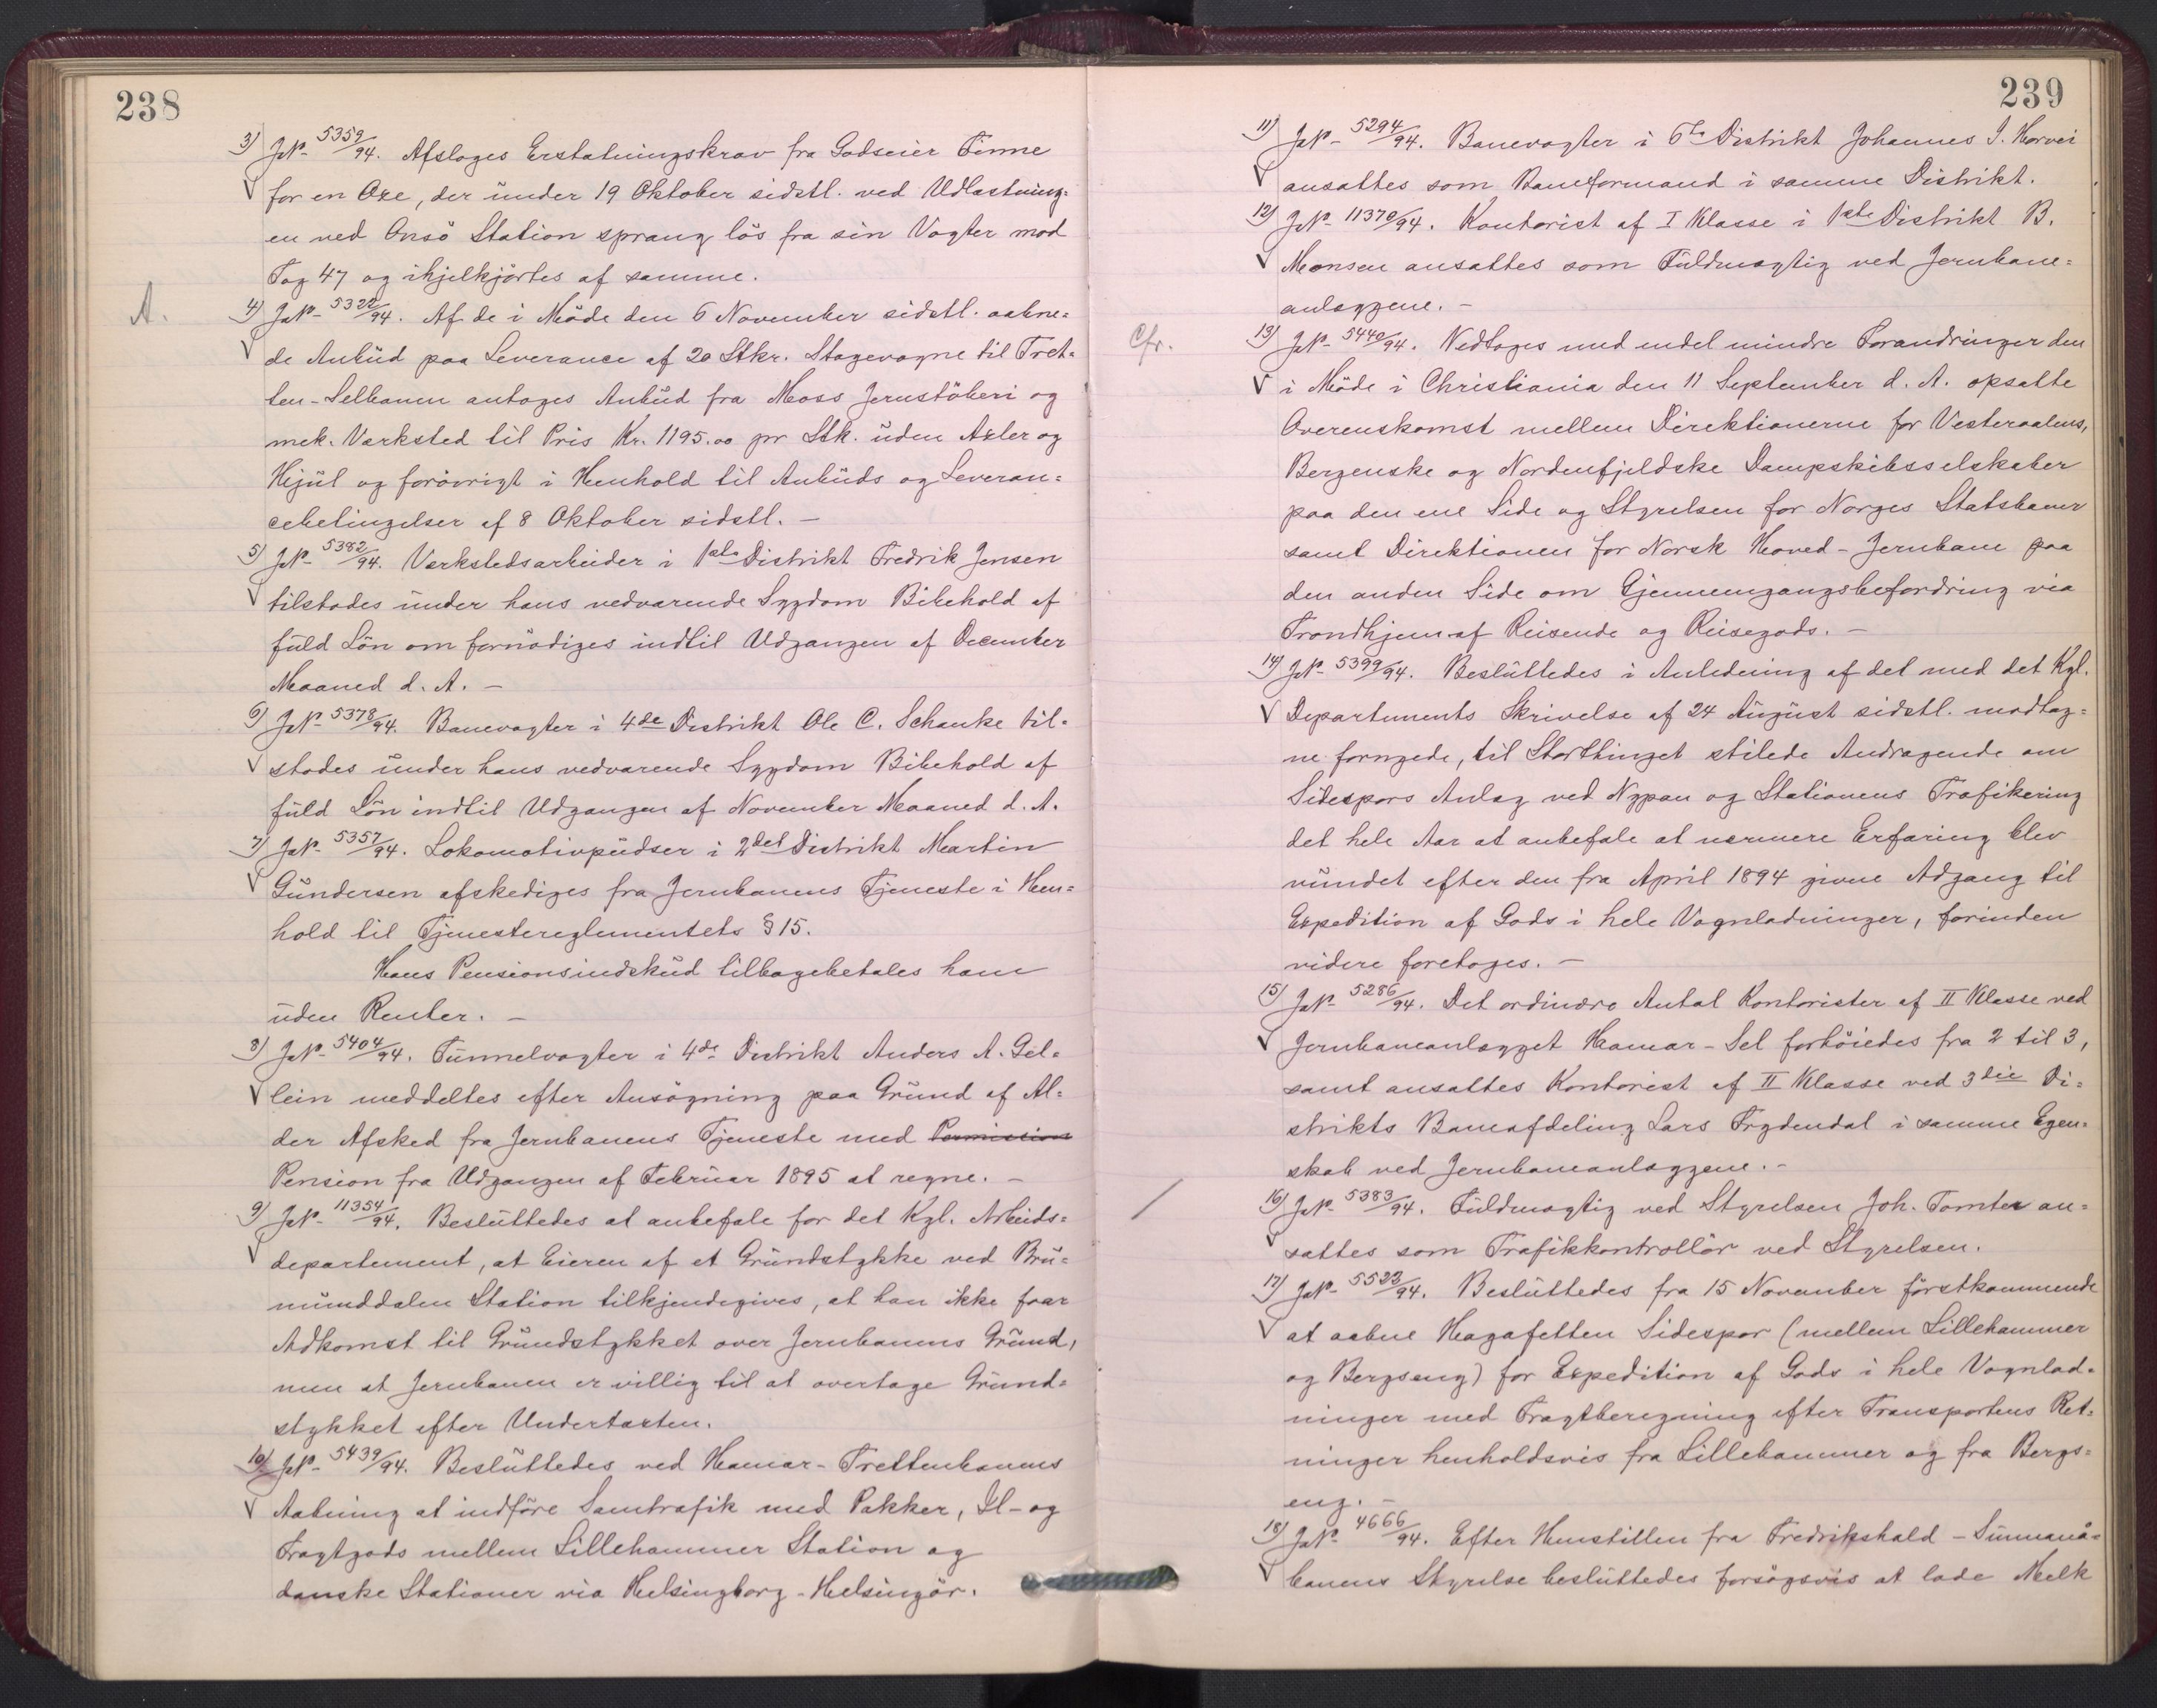 238
3) JN- 5359/94. Afsloges Erstatningskrav fra Godseier Finne
for en Oxe, der under 19 Oktober sidstl. ved Udlastning=
en ved Onsö Station sprang lös fra sin Vogter mod
Tog 47 og ihjelkjørtes af samme.
A.
4) JN- 5322/94. Af de i Möde den 6 November sidstl. aabne=
de Anbud paa Leverance af 20 Stkr. Stagevogne til Tret=
ten-Selbanen antoges Anbud fra Moss Jernstöberi og
mek. Værksted til Pris Kr. 1195.00 pr Stk. uden Axler og
Hjul og forövrigt i Henhold til Anbuds og Leveran=
cebetingelser af 8 Oktober sidstl. -
5) JN- 5382/94. Værkstedsarbeider i 1ste Distrikt Fredrik Jensen
tilstodes under hans vedvarende Sygdom Bibehold af
fuld Lön om fornödiges indtil Udgangen af December
Maaned d. A. -
6) JN- 5378/94. Banevogter i 4de Distrikt Ole C. Schanke til=
stodes under hans vedvarende Sygdom Bibehold af
fuld Lön indtil Udgangen af November Maaned d. A.
7) JN- 5357/94. Lokomotivpudser i 2det Distrikt Martin
Gundersen afskediges fra Jernbanens Tjeneste i Hen=
hold til Tjenestereglementets § 15.
Hans Pensionsindskud tilbagebetales ham
uden Renter. -
8) JN- 5404/94. Tunnelvogter i 4de Distrikt Anders A. Gel=
lein meddeltes efter Ansögning paa Grund af Al=
der Afsked fra Jernbanens Tjeneste med Permission
Pension fra Udgangen af Februar 1895 at regne. -
9) JN- 11354/94. Besluttedes at anbefale for det Kgl. Arbeids=
departement, at Eieren af et Grundstykke ved Bru=
munddalen Station tilkjendegives, at han ikke faar
Adkomst til Grundstykket over Jernbanens Grund,
men at Jernbanen er villig til at overtage Grund=
stykket efter Undertaxten.
10) JN- 5439/94. Besluttedes ved Hamar-Trettenbanens
Aabning at indföre Samtrafik med Pakker, Il- og
Fragtgods mellem Lillehammer Station og
danske Stationer via Helsingborg-Helsingör.
239
11) JN- 5294/94. Banevogter i 6te Distrikt Johannes I. Horvei
ansattes som Baneformand i samme Distrikt.
12) JN- 11370/94. Kontorist af I Klasse i 1ste Distrikt B.
Monsen ansattes som Fuldmægtig ved Jernbane=
anlæggene. -
Cfr.
13) JN- 5440/94. Vedtoges med endel mindre Forandringer den
i Möde i Christiania den 11 September d. A. opsatte
Overenskomst mellem Direktionerne for Vesteraalens,
Bergenske og Nordenfjeldske Dampskibsselskaber
paa den ene Side og Styrelsen for Norges Statsbaner
samt Direktionen for Norsk Hoved-Jernbane paa
den anden Side om Gjennemgangsbefordring via
Trondhjem af Reisende og Reisegods. -
14) JN- 5399/94. Besluttedes i Anledning af det med det Kgl.
Departements Skrivelse af 24 August sidstl. modtag=
ne fornyede, til Storthinget stilede Andragende om
Sidespors Anlæg ved Nypan og Stationens Trafikering
det hele Aar at anbefale at nærmere Erfaring blev
vundet efter den fra April 1894 givne Adgang til
Expedition af Gods i hele Vognladninger, forinden
videre foretoges. -
15) JN- 5286/94. Det ordinære Antal Kontorister af II Klasse ved
Jernbaneanlægget Hamar-Sel forhöiedes fra 2 til 3,
samt ansattes Kontorist af II Klasse ved 3die Di=
strikts Baneafdeling Lars Frydendal i samme Egen=
skab ved Jernbaneanlæggene. -
16) JN- 5383/94. Fuldmægtig ved Styrelsen Joh. Tomter an=
sattes som Trafikkontrollör ved Styrelsen.
17) JN- 5523/94. Besluttedes fra 15 November förstkommende
at aabne Hagafetten Sidespor (mellem Lillehammer
og Bergseng) for Expedition af Gods i hele Vognlad=
ninger med Fragtberegning efter Transportens Ret=
ninger henholdsvis fra Lillehammer og fra Bergs=
eng. -
18) JN- 4666/94. Efter Henstillen fra Fredrikshald-Sunnanå=
banens Styrelse besluttedes forsögsvis at lade Melk